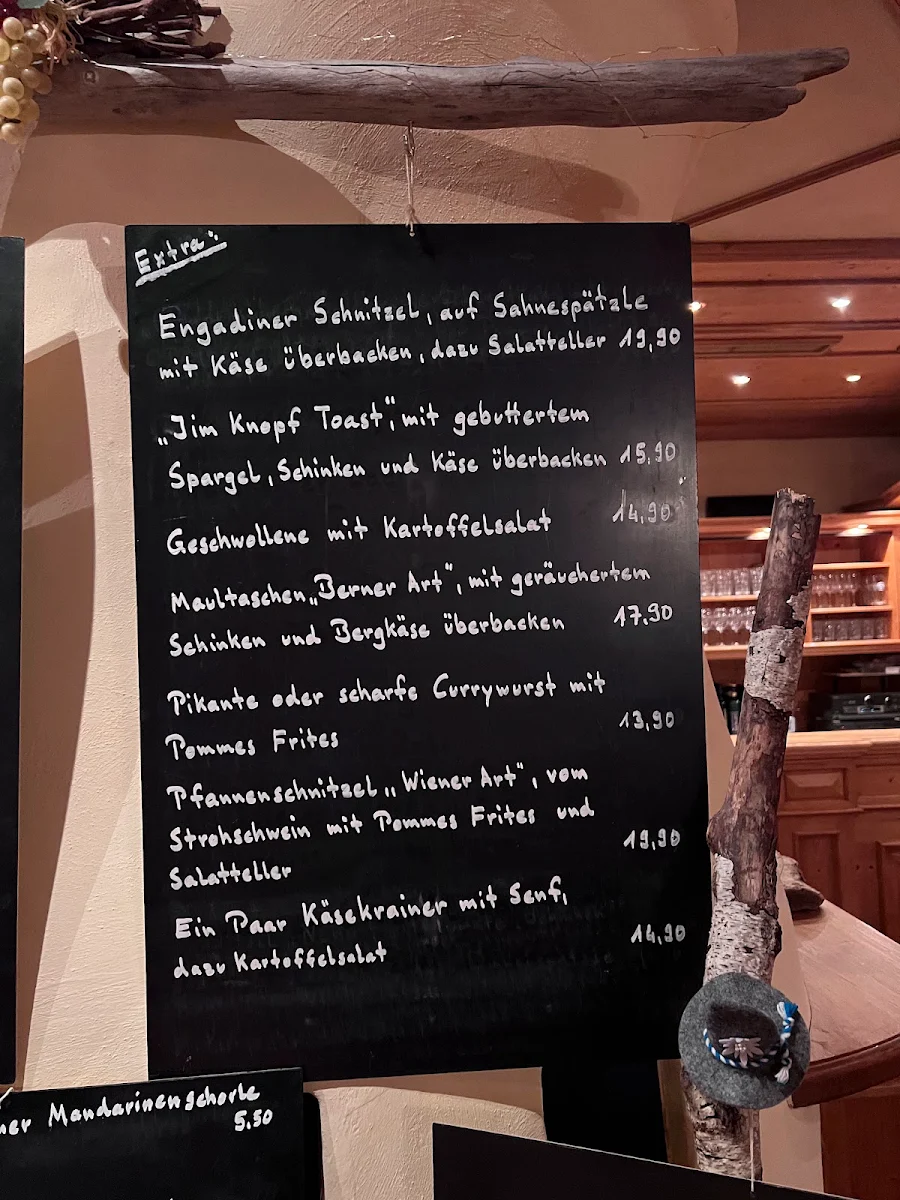 Extra:
Engadiner Schnitzel, auf Sahnespätzle
mit Käse überbacken, dazu Salatteller 19,90
„Jim Knopf Toast“, mit gebuttertem
Spargel, Schinken und Käse überbacken 15,90
Geschwollene mit Kartoffelsalat 14,90
Maultaschen „Berner Art“, mit geräuchertem
Schinken und Bergkäse überbacken 17,90
Pikante oder scharfe Currywurst mit
Pommes Frites 13,90
Pfannenschnitzel „Wiener Art“, vom
Strohschwein mit Pommes Frites und
Salatteller 19,90
Ein Paar Käsekrainer mit Senf,
dazu Kartoffelsalat 14,90
Mandarinenschorle
5.50